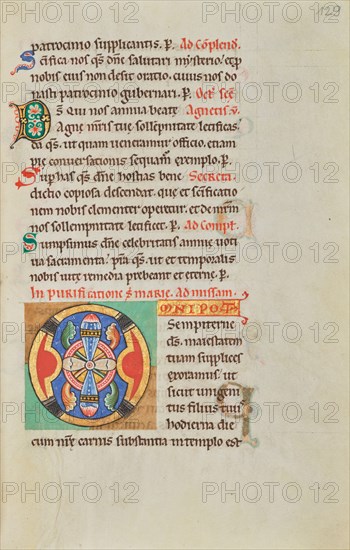 129
patrocinio supplicantis. p. Ad cōplend.
Scifica nos qs dne salutari mysterio. et p
nobis eius non desit oratio. cuius nos do
nasti patrocinio gubernari. p. Oct. sce
Ds qui nos annua beate Agnetis v.
Agne mris tue sollempnitate letificas.
da qs. ut quam veneramur officio. etiam
pie conversationis sequam exemplo. p.
Sup has qs dne hostias bene Secreta.
dictio copiosa descendat. que et scificatio
nem nobis clementer operetur. et de mrm
nos sollempnitate letificet. p. Ad compt.
Sumpsimus dne celebritatis annue voti
va sacramenta. pta qs. ut et temporalis
nobis vite remedia prebeant et eterne. p.
In purificatione s marie. Ad missam.
OMNIPOTS
Sempiterne
ds. maiestatem
tuam supplices
exoramus. ut
sicut unigeni
tus filius tuus
hodierna die
cum nre carnis substantia in templo est
PHOTO 12